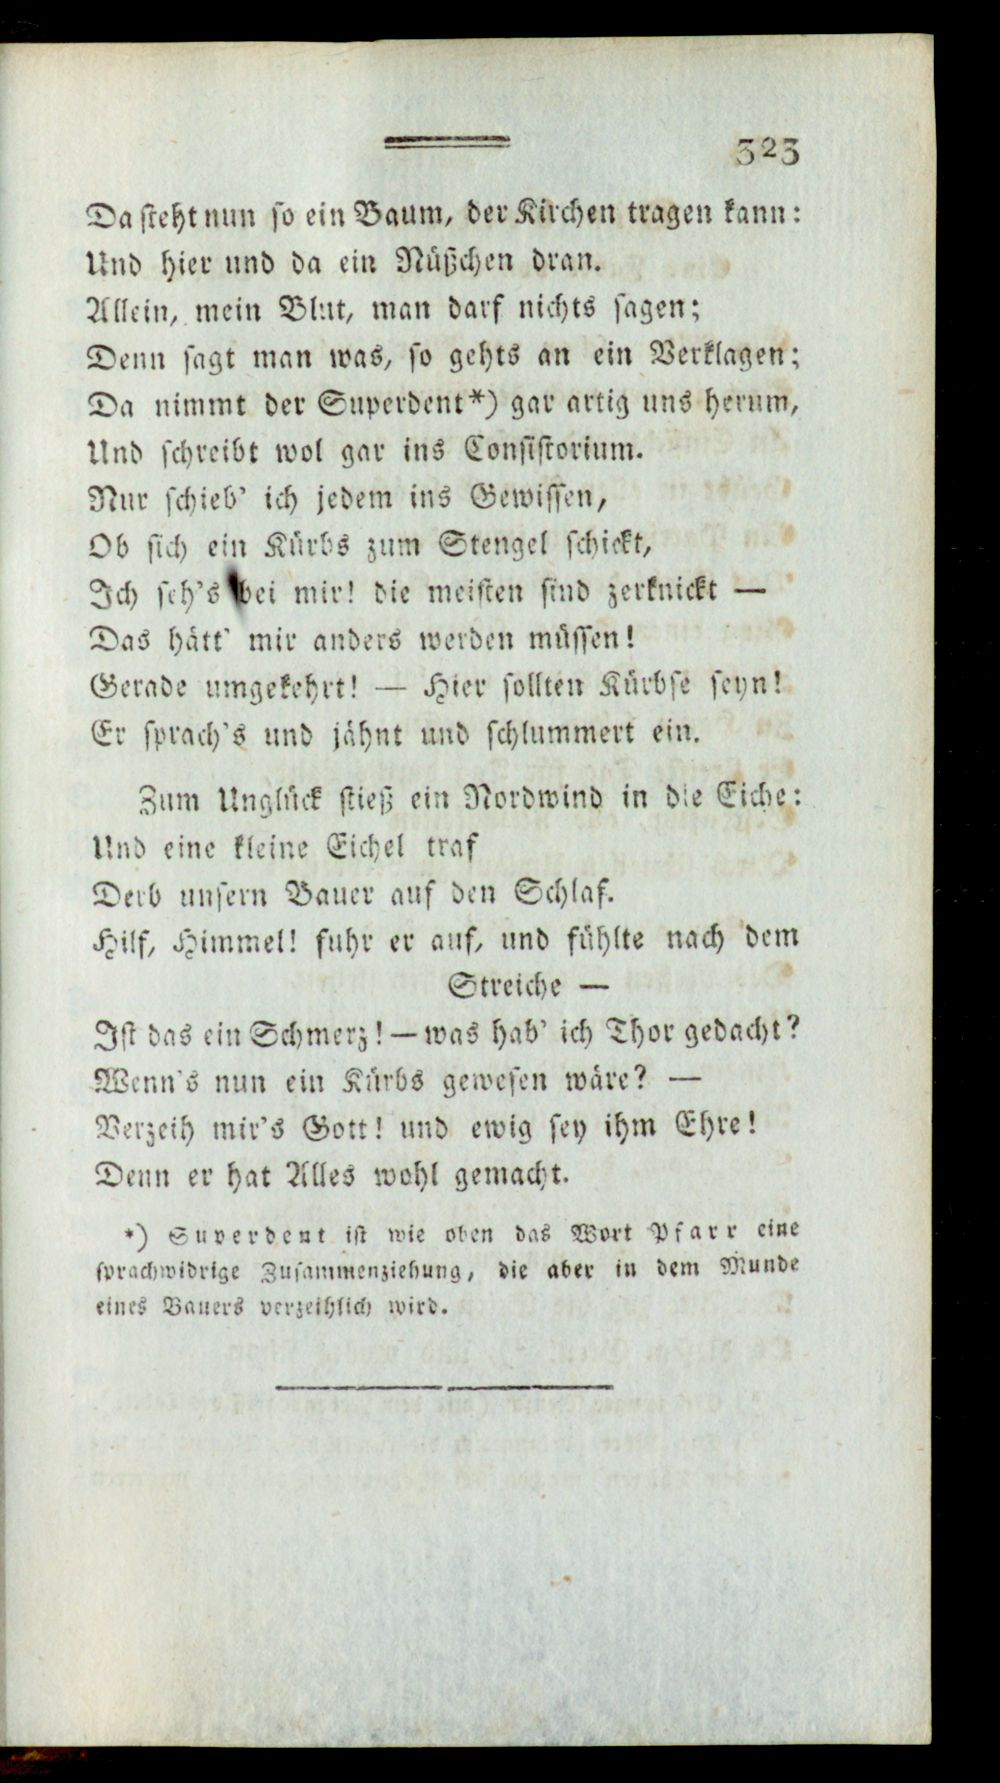 323
Da steht nun so ein Baum, der Kirchen tragen kann:
Und hier und da ein Nüßchen dran.
Allein, mein Blut, man darf nichts sagen;
Denn sagt man was, so gehts an ein Verklagen;
Da nimmt der Superdent*) gar artig uns herum,
Und schreibt wol gar ins Consistorium.
Nur schieb' ich jedem ins Gewissen,
Ob sich ein Kürbs zum Stengel schickt,
Ich seh's bei mir! die meisten sind zerknickt —
Das hätt' mir anders werden müssen!
Gerade umgekehrt! — Hier sollten Kürbse seyn!
Er sprach's und jähnt und schlummert ein.
Zum Unglück stieß ein Nordwind in die Eiche:
Und eine kleine Eichel traf
Derb unsern Bauer auf den Schlaf.
Hilf, Himmel! fuhr er auf, und fühlte nach dem
Streiche —
Ist das ein Schmerz! — was hab' ich Thor gedacht?
Wenn's nun ein Kürbs gewesen wäre? —
Verzeih mir's Gott! und ewig sey ihm Ehre!
Denn er hat Alles wohl gemacht.
*) Superdent ist wie oben das Wort Pfarr eine
sprachwidrige Zusammenziehung, die aber in dem Munde
eines Bauers verzeihlich wird.